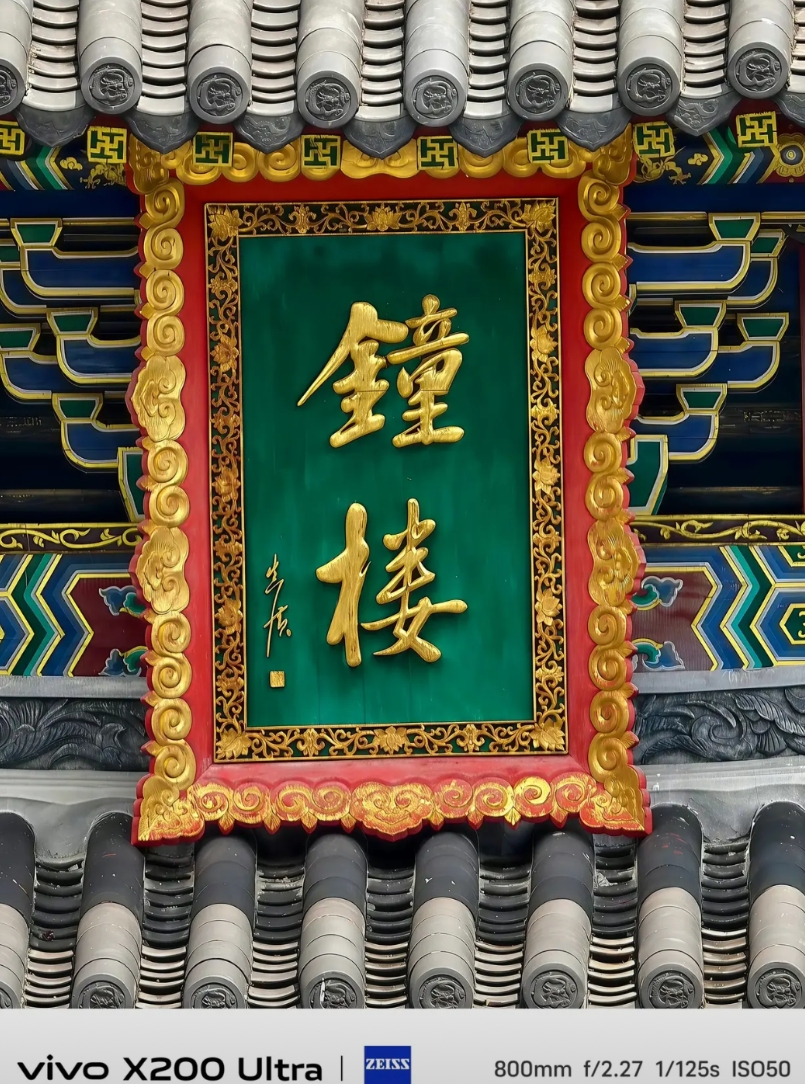 鐘
楼
vivo X200 Ultra | ZEISS 800mm f/2.27 1/125s ISO50